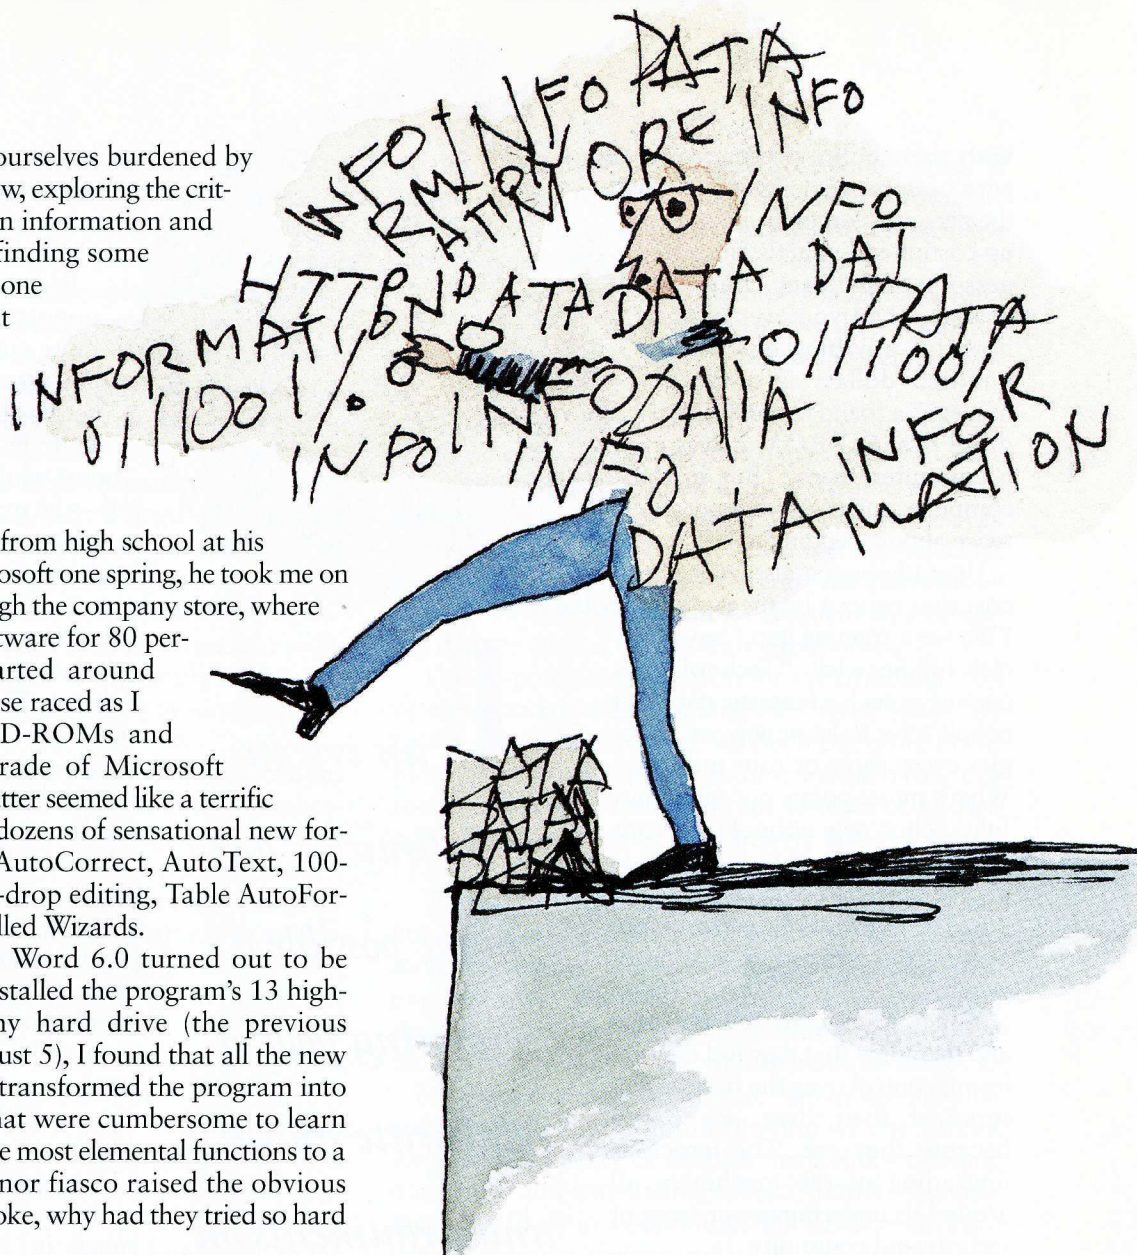 ourselves burdened by
w, exploring the crit-
n information and
finding some
one
t
from high school at his
osoft one spring, he took me on
gh the company store, where
tware for 80 per-
arted around
se raced as I
D-ROMs and
rade of Microsoft
tter seemed like a terrific
dozens of sensational new for-
AutoCorrect, AutoText, 100-
-drop editing, Table AutoFor-
lled Wizards.
Word 6.0 turned out to be
stalled the program's 13 high-
ny hard drive (the previous
ust 5), I found that all the new
transformed the program into
hat were cumbersome to learn
e most elemental functions to a
nor fiasco raised the obvious
oke, why had they tried so hard
DATA
INFO
INFO
INFO
RMATION
MORE
INFO
HTTP
DATA DATA
DAT
DATA
INFORMATI
0111001
1%
INFO
INFO DATA
INFO
INFO
DATA
INFOR
MATION
DATA
DATA